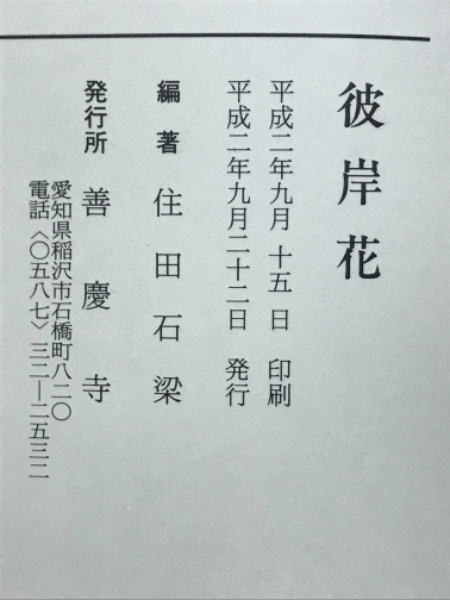 彼岸花
平成二年九月十五日 印刷
平成二年九月二十二日 発行
編著 住田石梁
発行所 善慶寺
愛知県稲沢市石橋町八二〇
電話〈〇五八七〉三二―二五三二